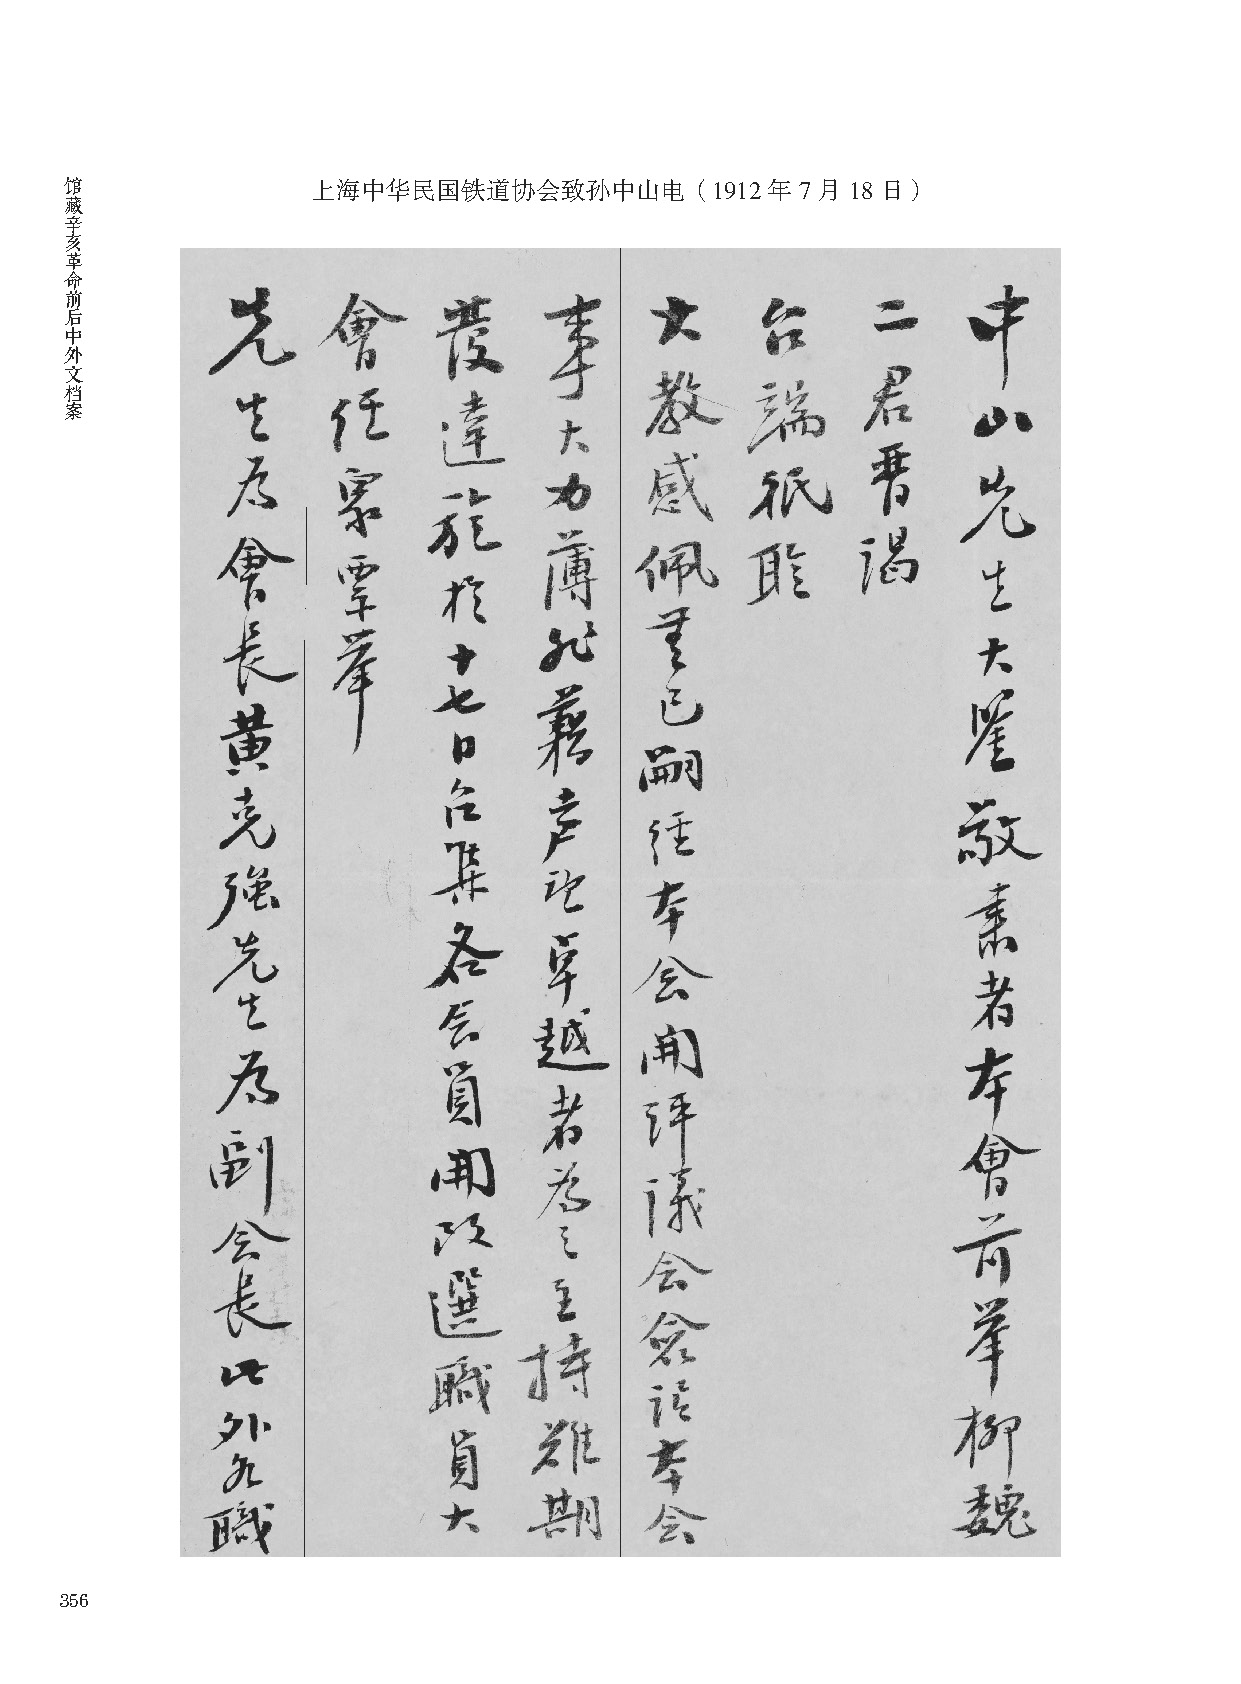 馆藏辛亥革命前后中外文档案
上海中华民国铁道协会致孙中山电（1912年7月18日）
中山先生大鉴敬肃者本會前举柳魏
二君晋谒
台端祇聆
大教感佩莫已嗣经本会開评議会佥谂本会
事大力薄非藉声望卓越者為之主持难期
發達旋於十七日召集各会員開改選職員大
會任眾覃举
先生為會長黄克强先生為副会長此外各職
356